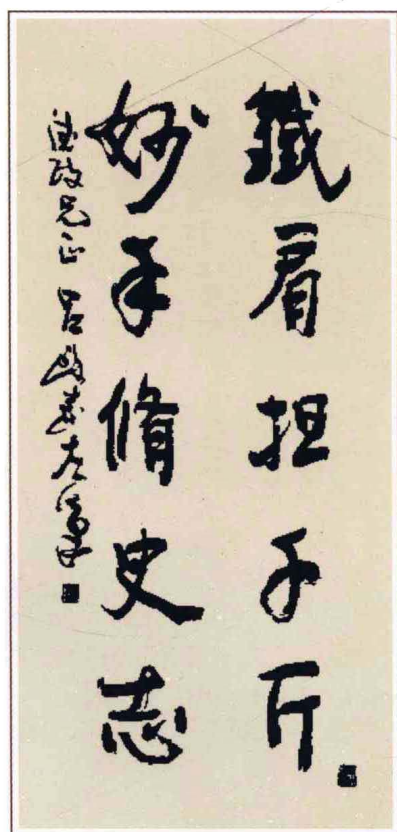 鐵肩担千斤
妙手脩史志
政兄正